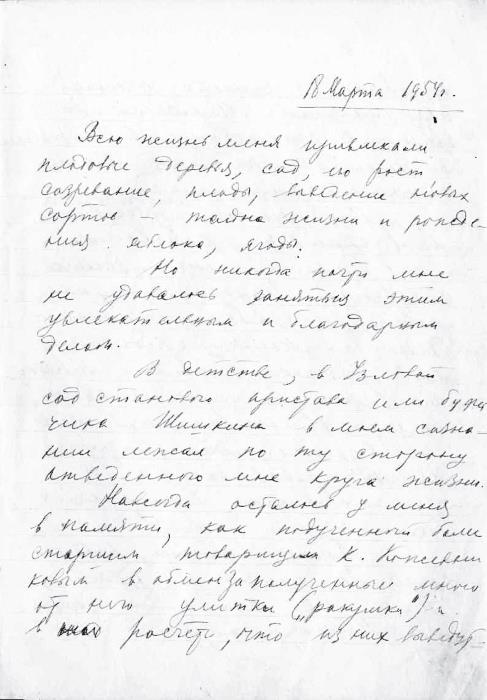 18 Марта 1954г.
Всю жизнь меня привлекали
плодовые деревья, сад, его рост
созревание, плоды, выведение новых
сортов – тайна жизни и рожде-
ния яблока, ягоды.
Но никогда почти мне
не удавалось заняться этим
увлекательным и благодарным
делом.
В детстве, в Узловой
сад станового пристава или
Шишкина в моем созна-
нии лежал по ту сторону
отведенного мне круга жизни.
Навсегда осталось у меня
в памяти, как подученный
старшим товарищем К.
ковым в обмен за полученные много
от него улитки („ракушки“) и
в расчете, что из них выведут-